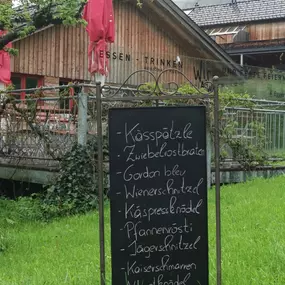 ESSEN - TRINKEN
- Kässpätzle
- Zwiebelrostbraten
- Gordon bleu
- Wienerschnitzel
- Kaspressknödel
- Pfannenrösti
- Jägerschnitzel
- Kaiserschmarren